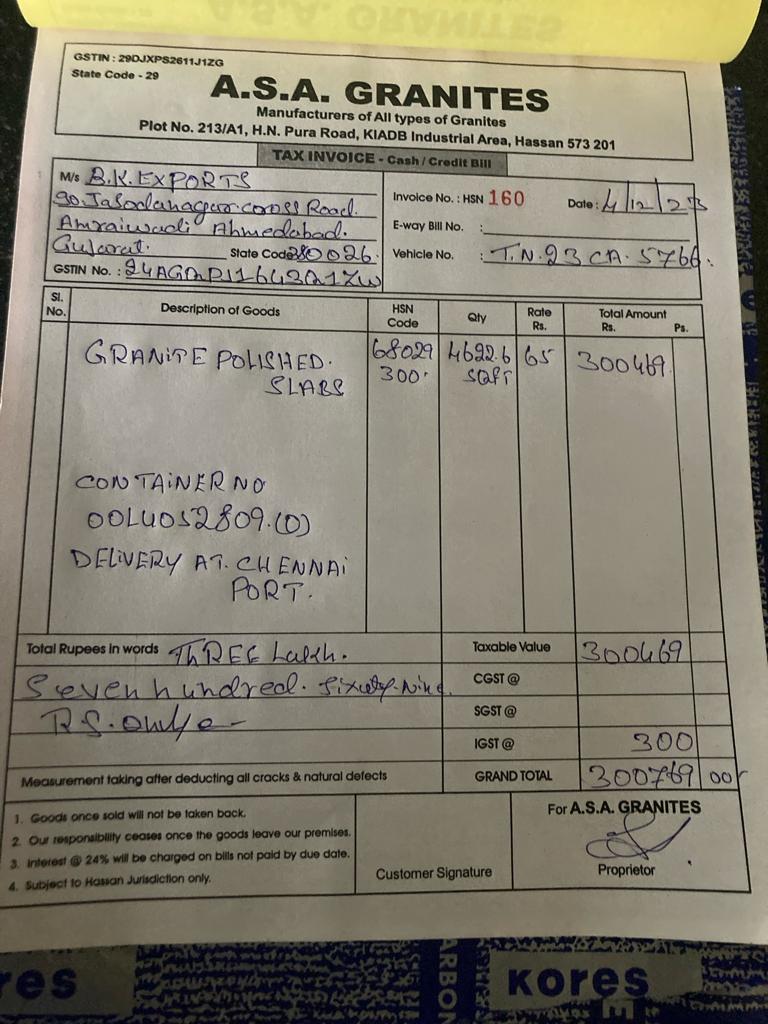 GSTIN : 29DJXPS2611J1ZG
State Code - 29
A.S.A. GRANITES
Manufacturers of All types of Granites
Plot No. 213/A1, H.N. Pura Road, KIADB Industrial Area, Hassan 573 201
TAX INVOICE - Cash / Credit Bill
M/s B.K. EXPORTS
90. Jasodanagar cross Road.
Amraiwadi Ahmedabad.
Gujarat. State Code 380026.
GSTIN No. :
Invoice No. : HSN 160 Date : 4/12/23
E-way Bill No. :
Vehicle No. : T.N. 23 CA. 5766.
Sl. No. Description of Goods HSN Code Qty Rate Rs. Total Amount Rs. Ps.
GRANITE POLISHED. 68029 4622.6 65 300469.
SLABS 300. SQFT
CONTAINER NO
OOLU052809.(0)
DELIVERY AT. CHENNAI
PORT.
Total Rupees in words ThREE Lakh. Taxable Value 300469
Seven hundred. Sixty-Nine. CGST @
RS. only- SGST @
IGST @ 300
Measurement taking after deducting all cracks & natural defects GRAND TOTAL 300769 00
1. Goods once sold will not be taken back.
2. Our responsibility ceases once the goods leave our premises.
3. Interest @ 24% will be charged on bills not paid by due date.
4. Subject to Hassan Jurisdiction only.
Customer Signature
For A.S.A. GRANITES
Proprietor
res
CARBON
KORES